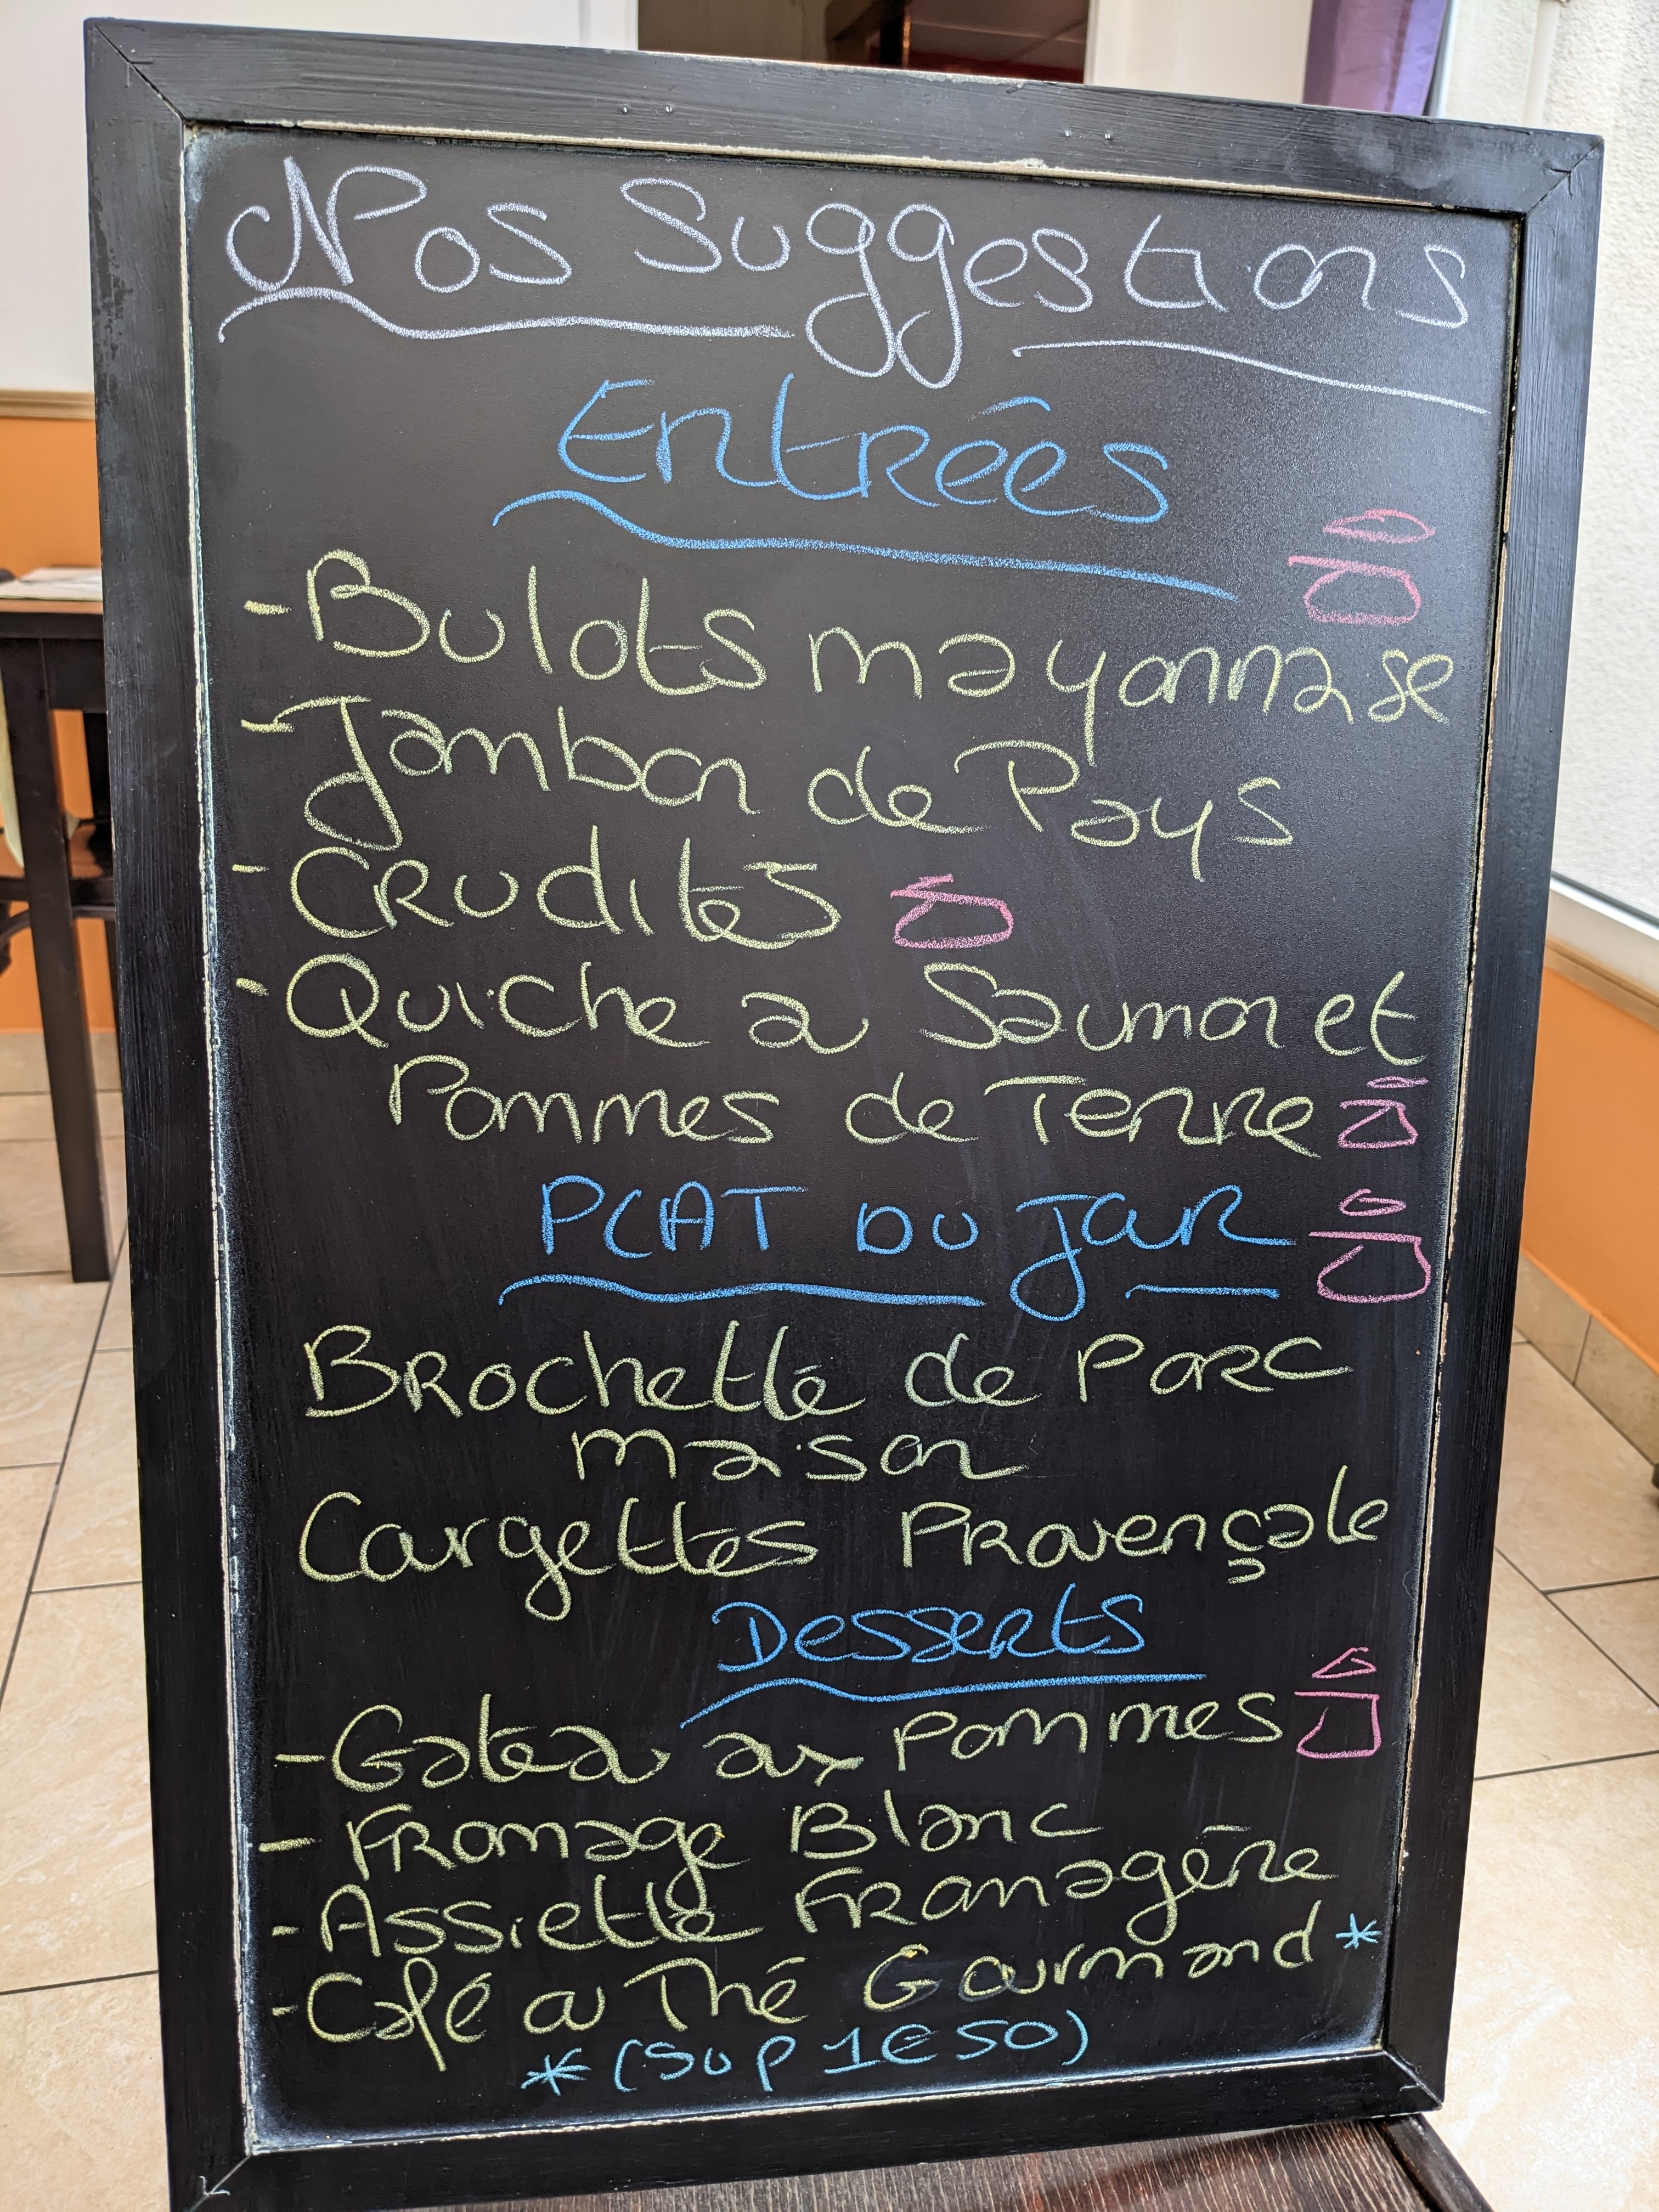 Nos Suggestions
Entrées
- Bulots mayonnase
- Jambon de Pays
- Crudites
- Quiche au Saumon et
Pommes de Terre
PLAT DU JOUR
Brochette de Porc
maison
Courgettes Provençale
Desserts
- Gateau aux pommes
- Fromage Blanc
- Assiette Fromagère
- Café ou Thé Gourmand *
* (Sup 1€50)